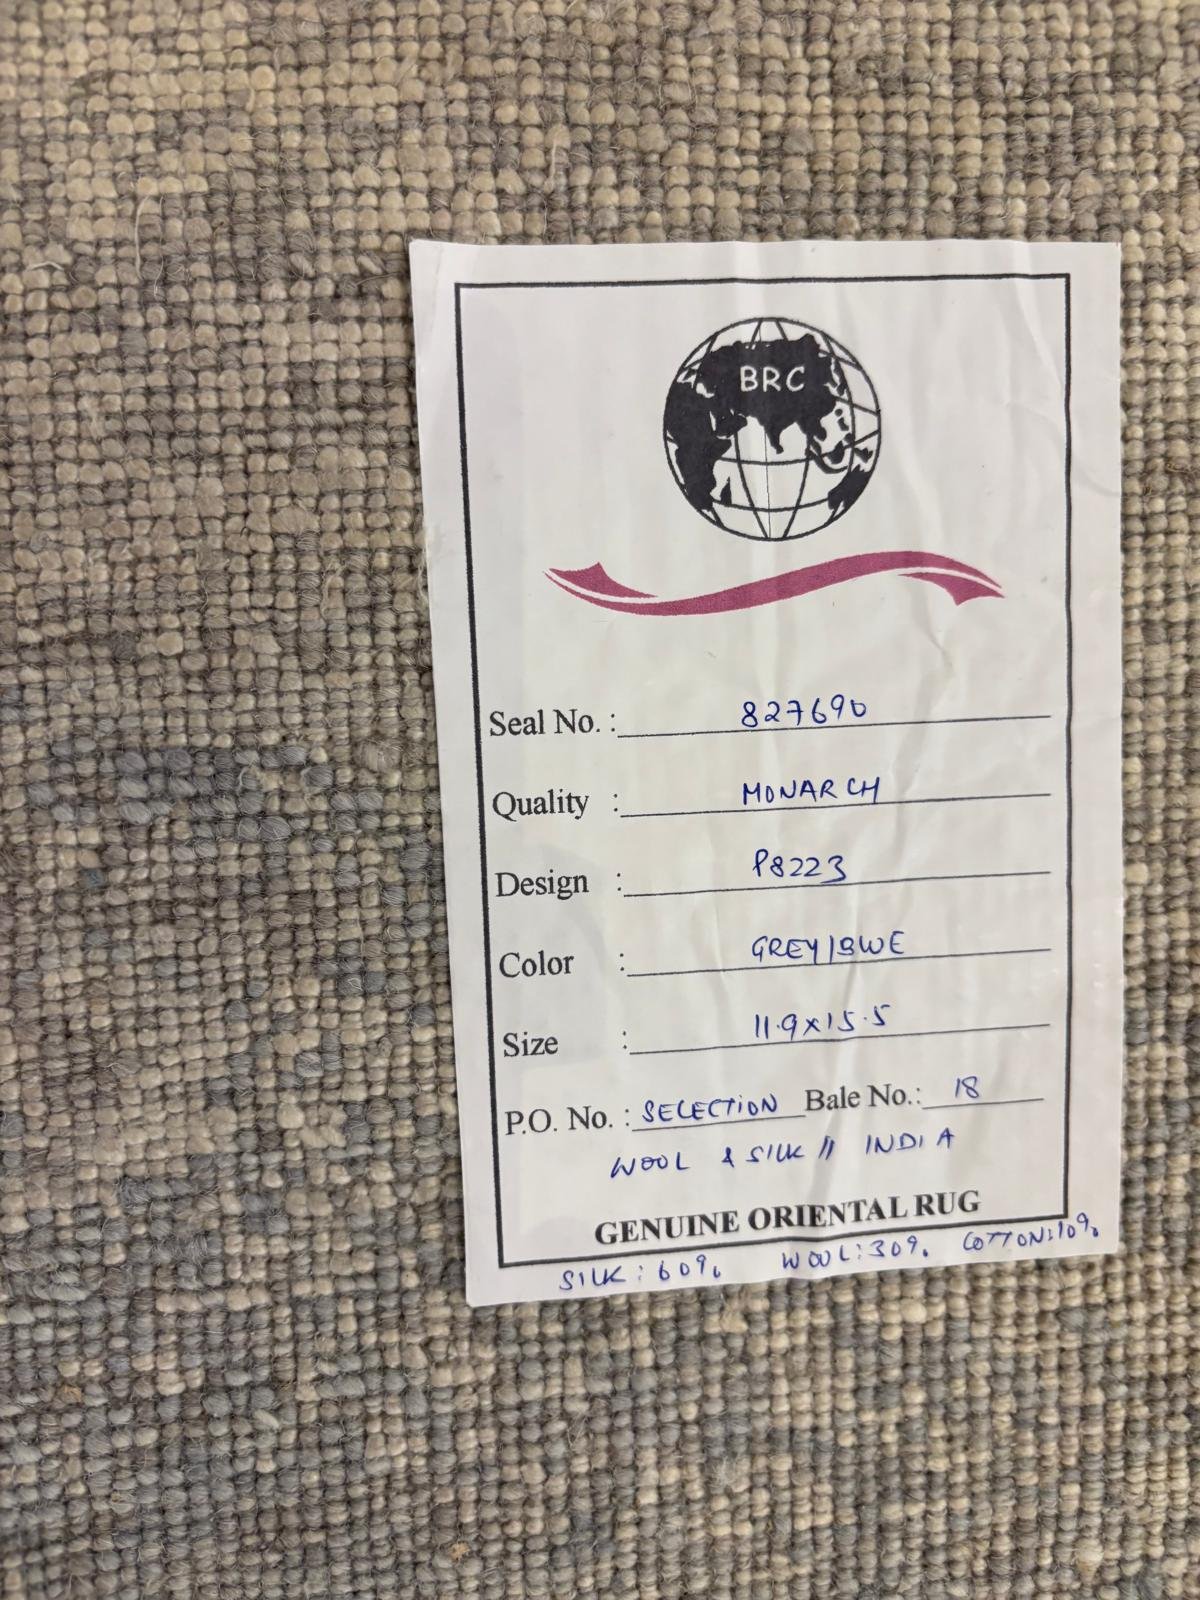 BRC
Seal No. : 827690
Quality : MONARCH
Design : P8223
Color : GREY/BLUE
Size : 11.9x15.5
P.O. No. : SELECTION Bale No.: 18
WOOL & SILK // INDIA
GENUINE ORIENTAL RUG
SILK: 60% WOOL: 30% COTTON: 10%